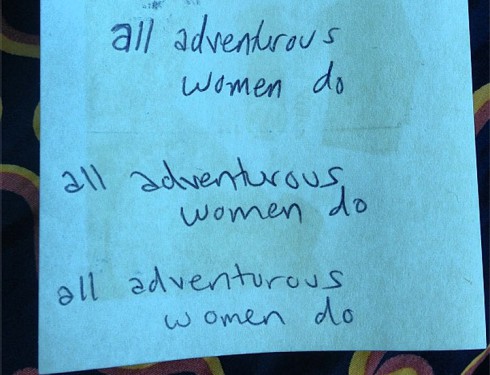 all adventurous
women do
all adventurous
women do
all adventurous
women do